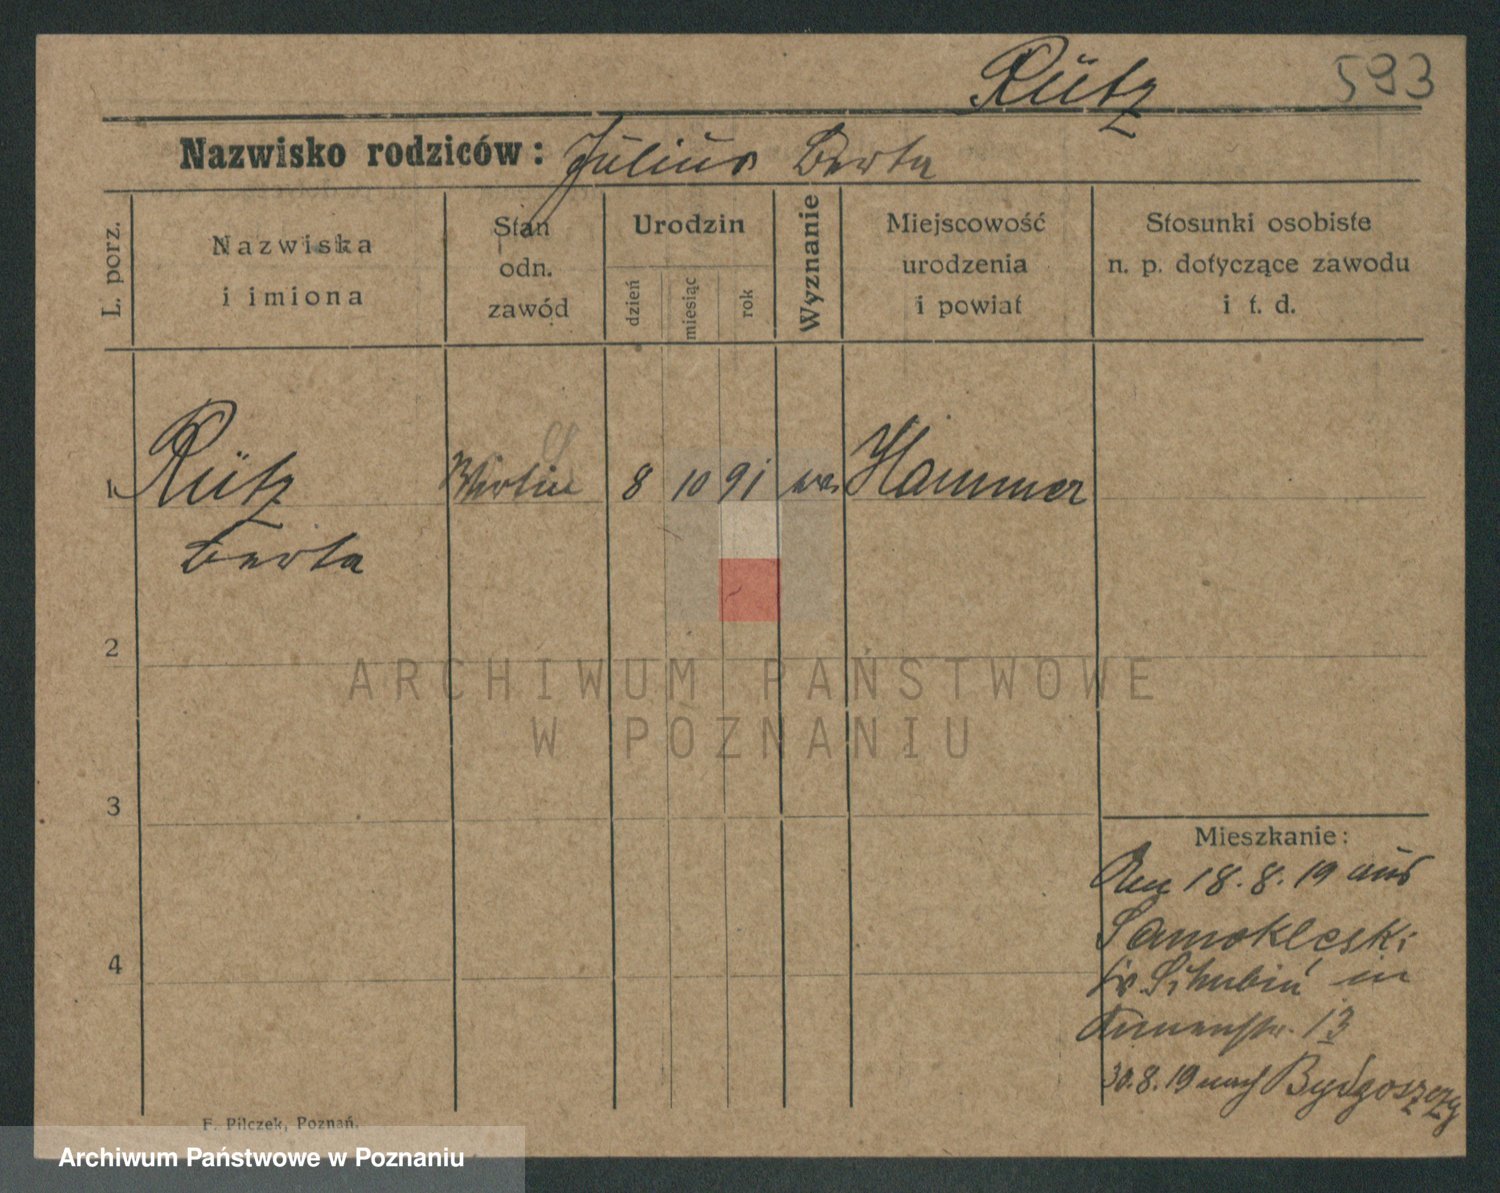 Rütz 593
Nazwisko rodziców: Julius Berta
L. porz.
Nazwiska
i imiona
Stan
odn.
zawód
Urodzin
dzień
miesiąc
rok
Wyznanie
Miejscowość
urodzenia
i powiat
Stosunki osobiste
n. p. dotyczące zawodu
i t. d.
1 Rütz 8 10 91 Hammer
Berta
2
3
4
Mieszkanie:
18.8.19 aus
Samoklęski
Kr Schubin in
13
30.8.19 nach Bydgoszczy
F. Pilczek, Poznań.
ARCHIWUM PAŃSTWOWE
W POZNANIU
Archiwum Państwowe w Poznaniu